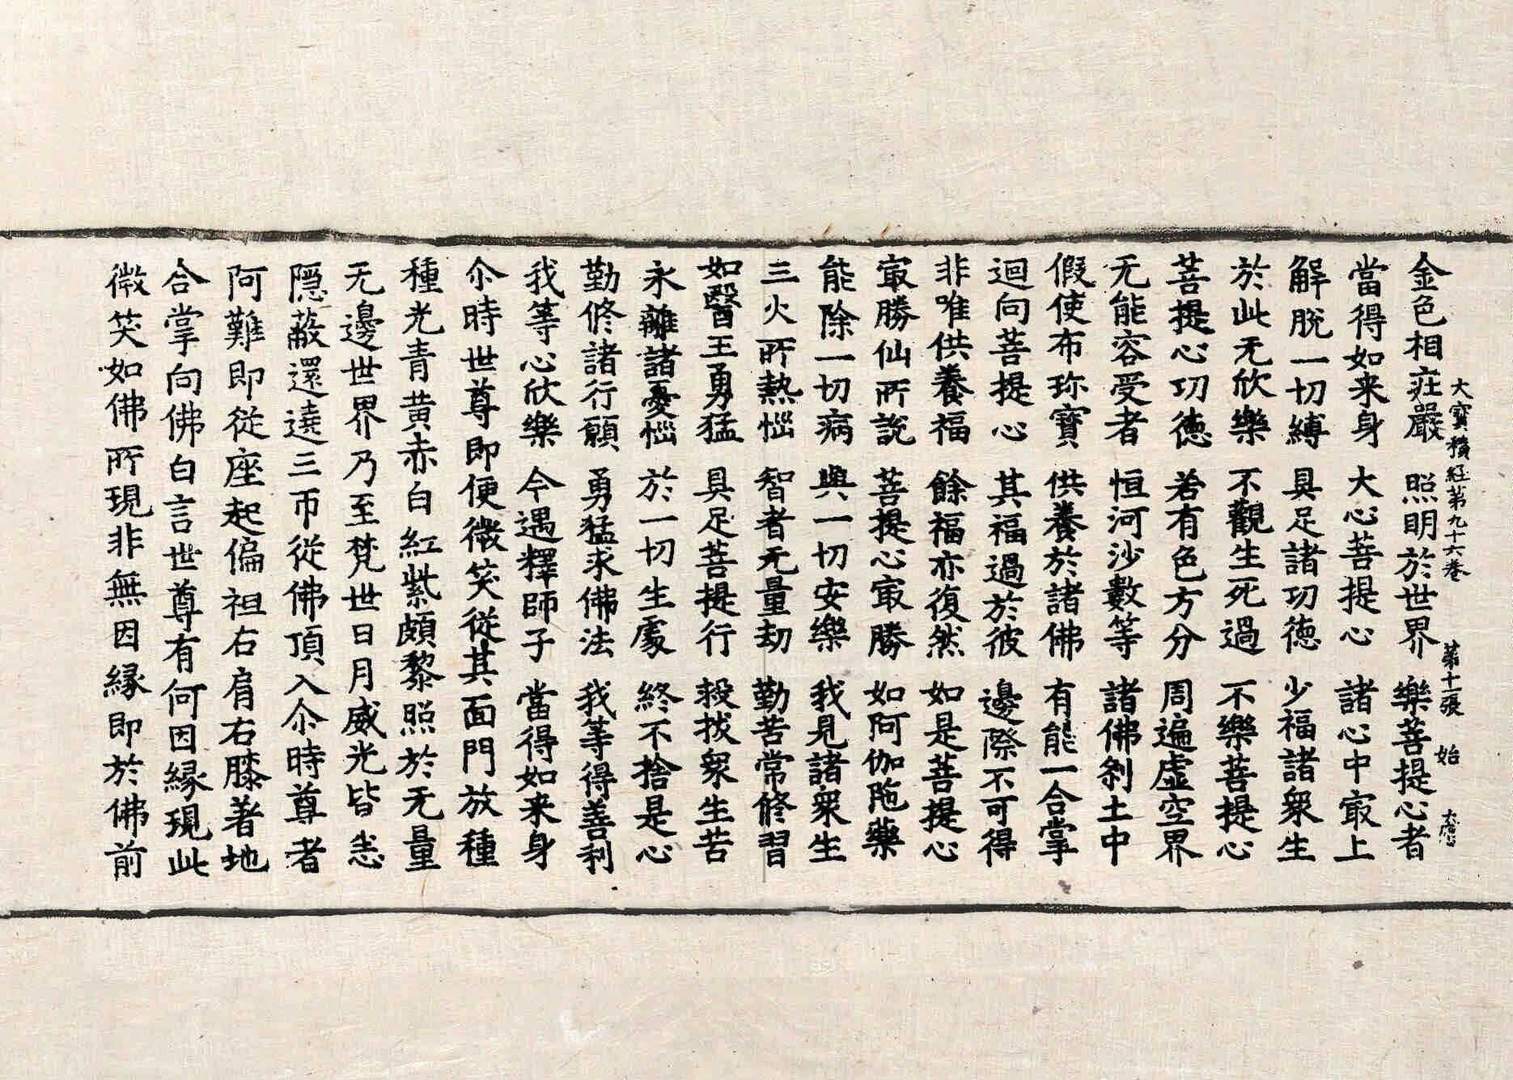 大寶積経第九十六卷 第十一張 始
金色相庄嚴 照明於世界 樂菩提心者
當得如来身 大心菩提心 諸心中㝡上
解脫一切縛 具足諸功德 少福諸衆生
於此无欣樂 不觀生死過 不樂菩提心
菩提心功德 若有色方分 周遍虛空界
无能容受者 恒河沙數等 諸佛剎土中
假使布珎寶 供養於諸佛 有能一合掌
迴向菩提心 其福過於彼 邊際不可得
非唯供養福 餘福亦復然 如是菩提心
㝡勝仙所說 菩提心㝡勝 如阿伽陁藥
能除一切病 與一切安樂 我見諸衆生
三火所熱惱 智者无量劫 勤苦常修習
如醫王勇猛 具足菩提行 救拔衆生苦
永離諸憂惱 於一切生處 終不捨是心
勤修諸行願 勇猛求佛法 我等得善利
我等心欣樂 今遇釋師子 當得如来身
尒時世尊即便微笑從其面門放種
種光青黄赤白紅紫頗黎照於无量
无邊世界乃至梵世日月威光皆悉
隱蔽還遶三帀從佛頂入尒時尊者
阿難即從座起偏袒右肩右膝著地
合掌向佛白言世尊有何因縁現此
微笑如佛所現非無因縁即於佛前